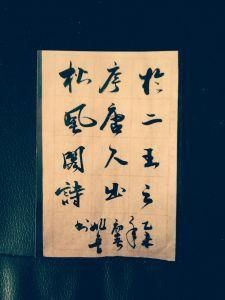 於二王之
序唐人出
松風閣詩
乙未
年